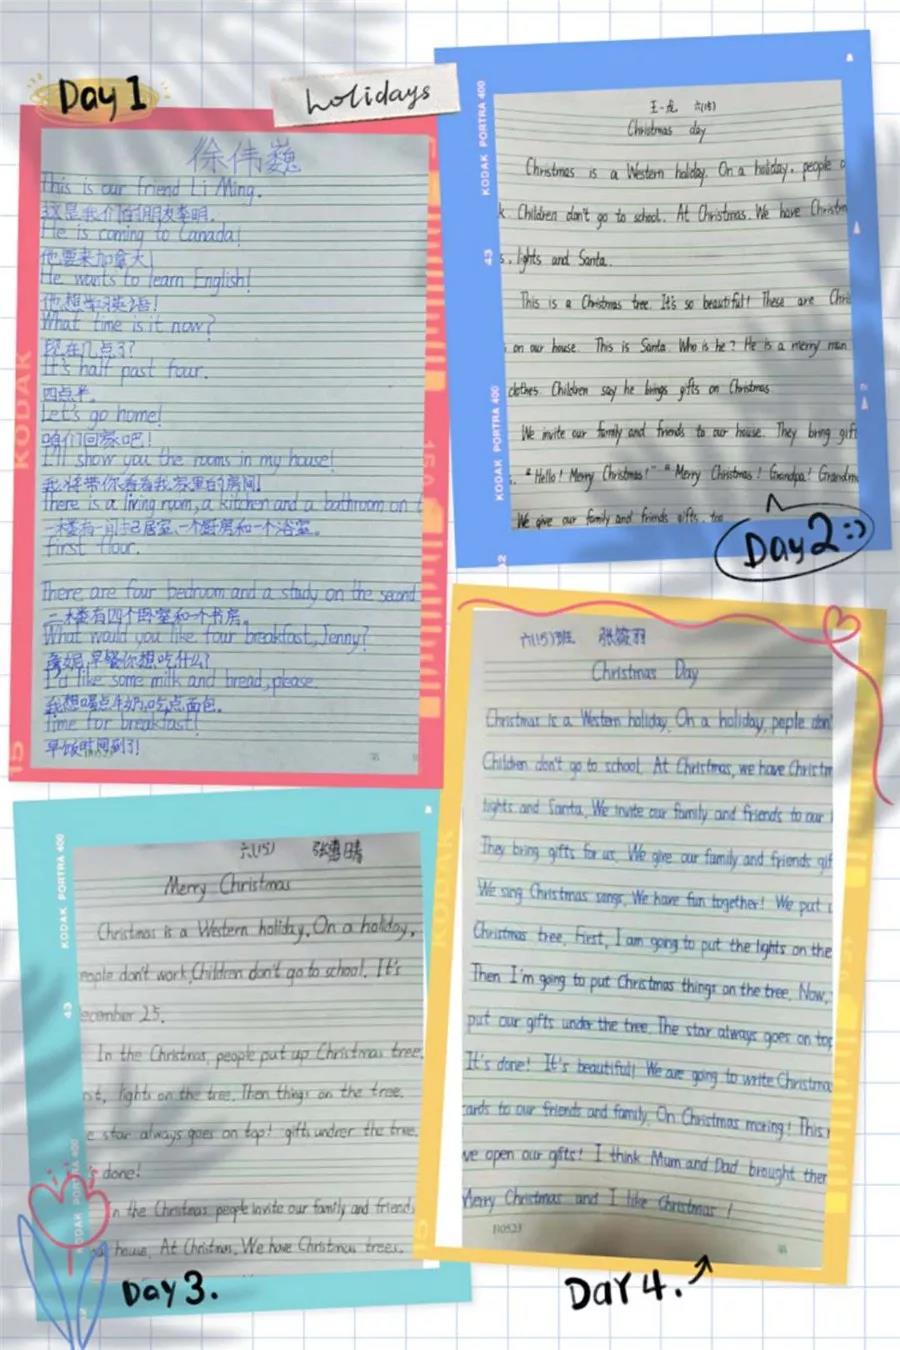 Day 1
holidays
徐伟巍
This is our friend Li Ming.
这是我们的朋友李明.
He is coming to Canada!
他要来加拿大!
He wants to learn English!
他想学习英语!
What time is it now?
现在几点了?
It's half past four.
四点半.
Let's go home!
咱们回家吧!
I'll show you the rooms in my house!
我将带你看看我家里的房间!
There is a living room, a kitchen and a bathroom on t
一楼有一间起居室、一个厨房和一个浴室。
first flour.
There are four bedroom and a study on the second
二楼有四个卧室和一个书房。
What would you like four breakfast, Jenny?
詹妮,早餐你想吃什么?
I'd like some milk and bread, please.
我想喝点牛奶,吃点面包.
Time for breakfast!
早饭时间到了!
KODAK
15
KODAK PORTRA 400
43
KODAK PORTRA 400
王一虎 六(15)
Christmas day
Christmas is a Western holiday. On a holiday, people d
k. Children don't go to school. At Christmas. We have Christm
s, lights and Santa.
This is a Christmas tree. It's so beautiful! These are Chri
s on our house. This is Santa. Who is he? He is a merry man
clothes. Children say he brings gifts on Christmas
We invite our family and friends to our house. They bring gift
. "Hello! Merry Christmas!" "Merry Christmas! Grandpa! Grandm
We give our family and friends gifts, too
Day 2 :)
KODAK PORTRA 400
43
六(15) 张惠晴
Merry Christmas
Christmas is a Western holiday. On a holiday,
eople don't work. Children don't go to school. It's
ecember 25.
In the Christmas, people put up Christmas tree.
st, lights on the tree. Then things on the tree.
e star always goes on top! gifts undrer the tree.
s done!
In the Christmas people invite our family and friends
house. At Christmas. We have Christmas trees.
Day 3.
六(15)班 张筱羽
Christmas Day
Christmas is a Western holiday. On a holiday, peple don'
Children don't go to school. At Christmas, we have Christm
lights and Santa. We invite our family and friends to our
They bring gifts for us. We give our family and friends gif
We sing Christmas songs. We have fun together! We put u
Christmas tree. First, I am going to put the lights on the
Then I'm going to put Christmas things on the tree. Now,
put our gifts under the tree. The star always goes on top
It's done! It's beautiful! We are going to write Christma
cards to our friends and family. On Christmas moring! This
we open our gifts! I think Mum and Dad brought ther
Merry Christmas and I like Christmas!
110523
DAY 4.